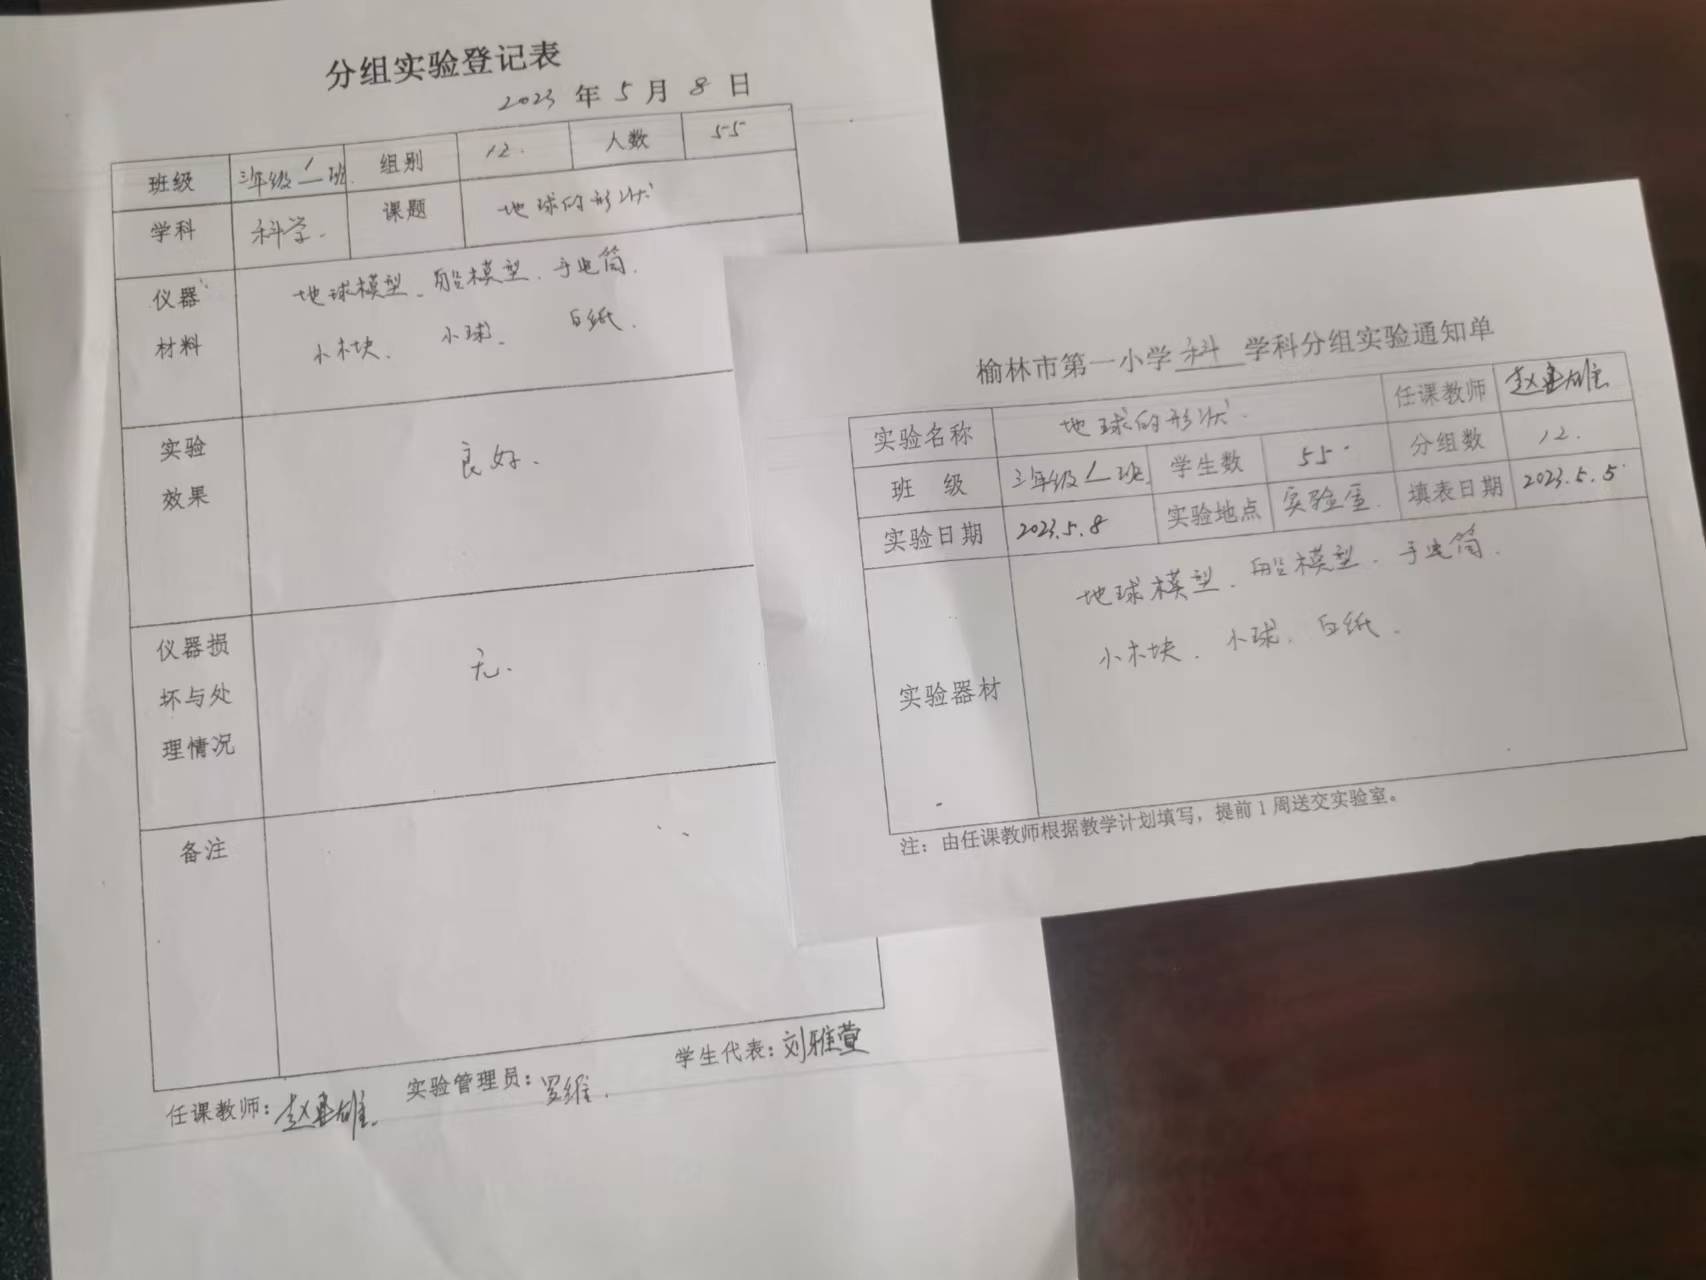 分组实验登记表
2023 年 5 月 8 日
班级 三年级 1 班 组别 12. 人数 55
学科 科学. 课题 地球的形状
仪器材料 地球模型、船模型、手电筒.
小木块、小球、白纸.
实验效果 良好.
仪器损坏与处理情况 无.
备注
任课教师: 实验管理员: 罗维. 学生代表: 刘雅萱
榆林市第一小学 科 学科分组实验通知单
实验名称 地球的形状. 任课教师
班 级 三年级 1 班 学生数 55. 分组数 12.
实验日期 2023.5.8 实验地点 实验室. 填表日期 2023.5.5
实验器材 地球模型、船模型、手电筒.
小木块、小球、白纸.
注：由任课教师根据教学计划填写，提前 1 周送交实验室。